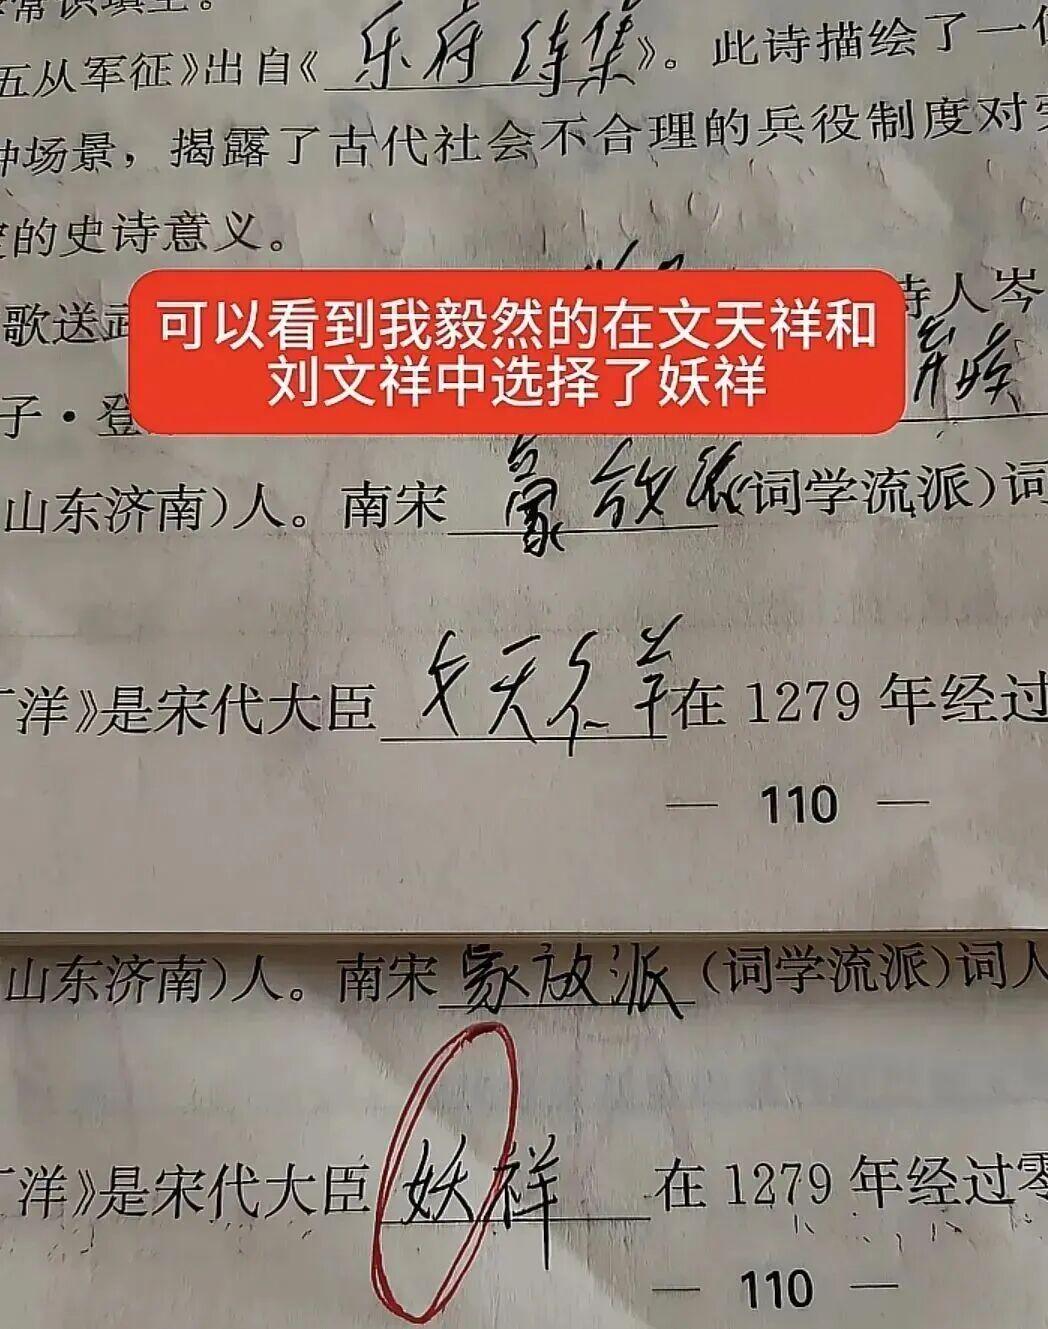 常识填空。
五从军征》出自《乐府诗集》。此诗描绘了一
种场景，揭露了古代社会不合理的兵役制度对
的史诗意义。
歌送武
诗人岑
可以看到我毅然的在文天祥和
刘文祥中选择了妖祥
子·登
弃疾
山东济南）人。南宋豪放派（词学流派）词
丁洋》是宋代大臣文天祥在1279年经过
— 110 —
山东济南）人。南宋豪放派（词学流派）词人
丁洋》是宋代大臣妖祥在1279年经过零
— 110 —